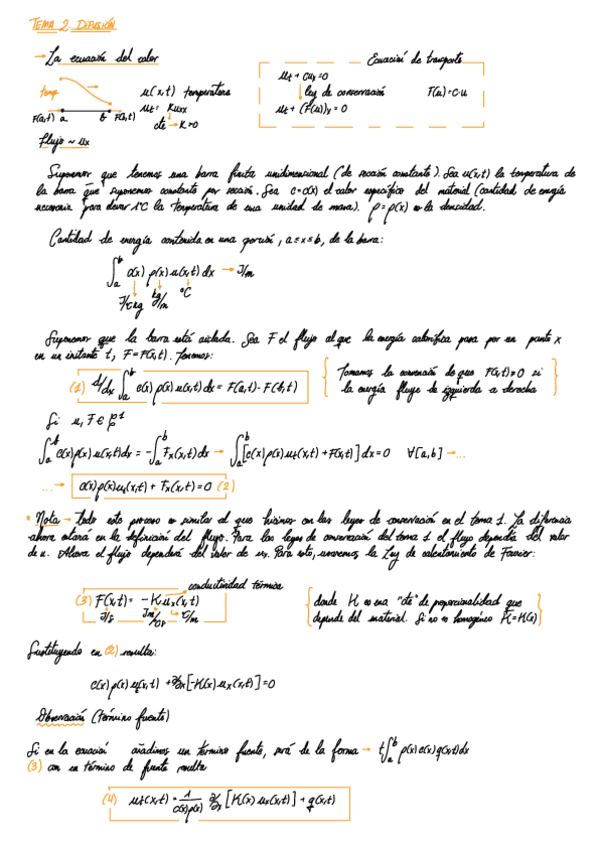 TEMA 2 DIFUSIÓN
→ La ecuación del calor
Ecuación de transporte
temp.
u(x,t) temperatura
u_t + cu_x = 0
↓ ley de conservación F(u) = c·u
F(a,t) a b F(b,t)
u_t = K u_xx
u_t + (F(u))_x = 0
cte → K>0
Flujo ~ u_x
Suponemos que tenemos una barra finita unidimensional (de sección constante). Sea u(x,t) la temperatura de
la barra que suponemos constante por sección. Sea c=c(x) el calor específico del material (cantidad de energía
necesaria para elevar 1°C la temperatura de una unidad de masa). ρ=ρ(x) es la densidad.
Cantidad de energía contenida en una porción, a≤x≤b, de la barra:
∫_a^b c(x) ρ(x) u(x,t) dx → J/m
J/°C kg kg/m °C
Suponemos que la barra está aislada. Sea F el flujo al que la energía calorífica pasa por un punto x
en un instante t, F=F(x,t). Tenemos:
(1) d/dx ∫_a^b c(x) ρ(x) u(x,t) dx = F(a,t) - F(b,t)
Tomamos la convención de que F(x,t)>0 si
la energía fluye de izquierda a derecha
Si u, F ∈ C^1
∫_a^b c(x)ρ(x)u_t(x,t)dx = -∫_a^b F_x(x,t)dx → ∫_a^b [c(x)ρ(x)u_t(x,t) + F_x(x,t)] dx = 0 ∀[a,b] → ...
... → c(x)ρ(x)u_t(x,t) + F_x(x,t) = 0 (2)
* Nota → Todo este proceso es similar al que hicimos con las leyes de conservación en el tema 1. La diferencia
ahora estará en la definición del flujo. Para las leyes de conservación del tema 1 el flujo dependía del valor
de u. Ahora el flujo dependerá del valor de u_x. Para esto, usaremos la Ley de calentamiento de Fourier:
conductividad térmica
(3) F(x,t) = -K u_x(x,t)
J/s °C/m
donde K es una "cte" de proporcionalidad que
depende del material. Si no es homogéneo K=K(x)
Sustituyendo en (2) resulta:
c(x) ρ(x) u_t(x,t) + ∂/∂x [-K(x) u_x(x,t)] = 0
Observación (término fuente)
Si en la ecuación añadimos un término fuente, será de la forma → ∫_a^b ρ(x)c(x)q(x,t)dx
(3) con un término de fuente resulta
(4) u_t(x,t) = 1/(c(x)ρ(x)) ∂/∂x [K(x) u_x(x,t)] + q(x,t)